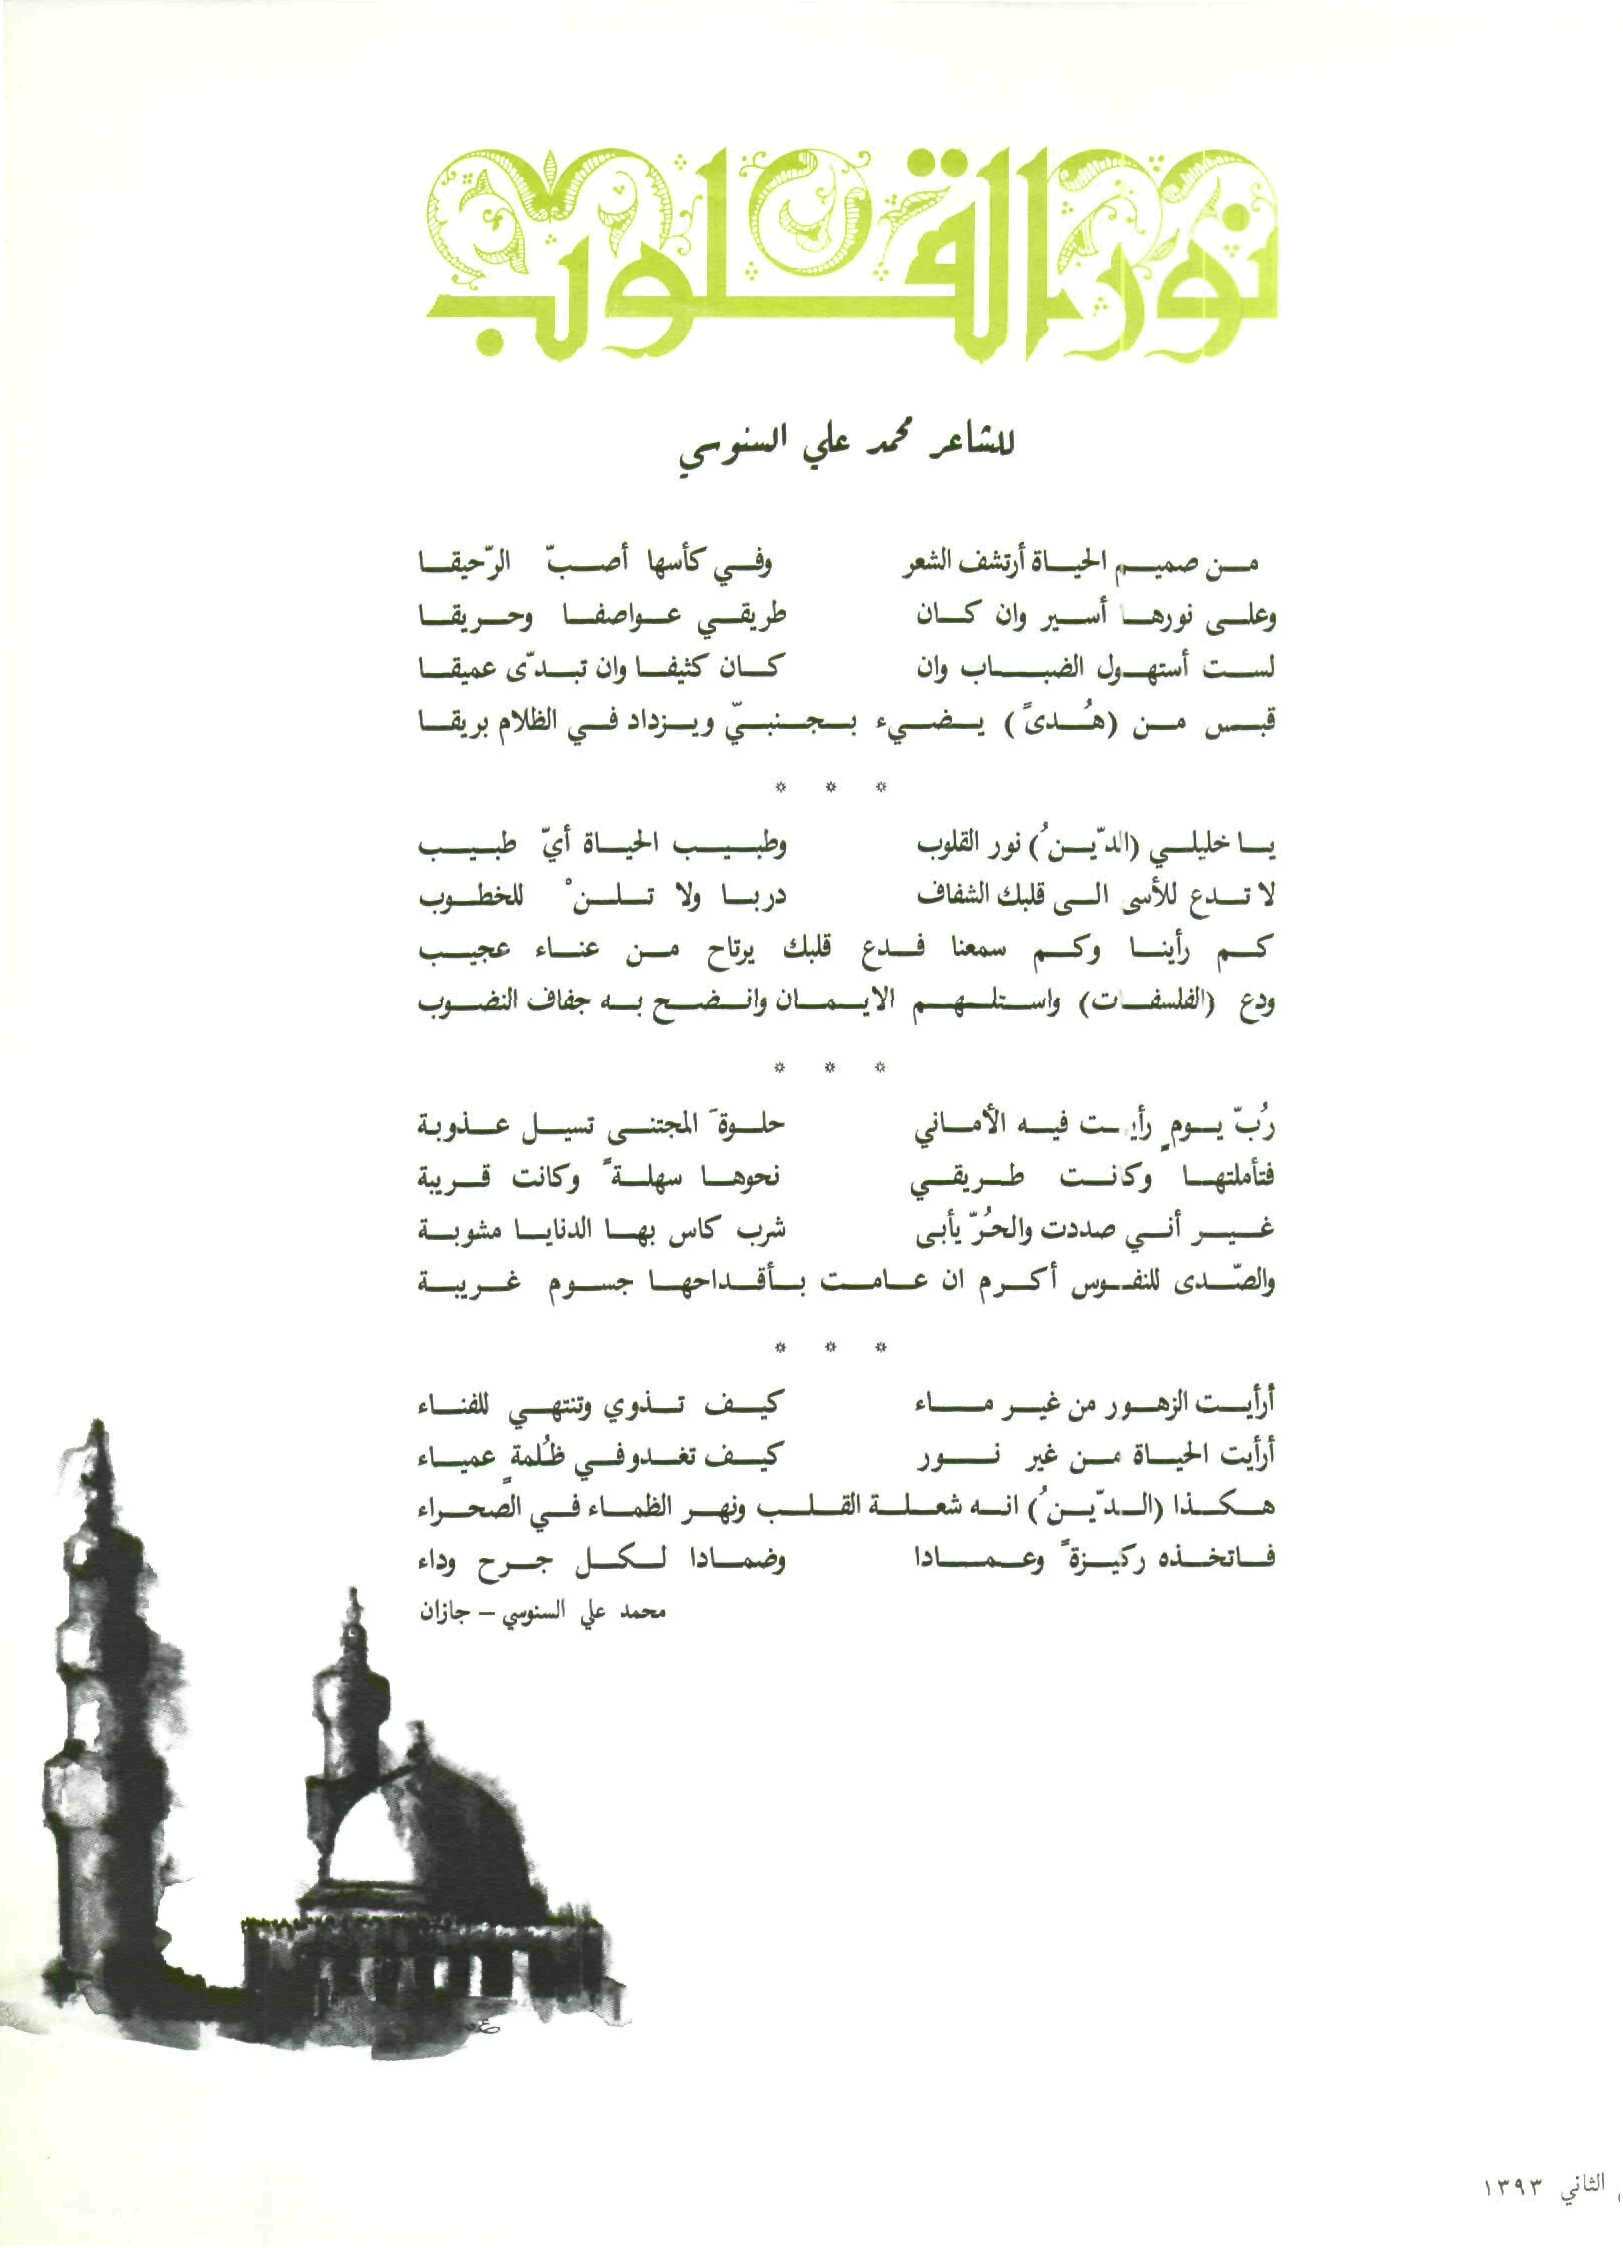 نور القلوب
للشاعر محمد علي السنوسي
من صميم الحياة أرتشف الشعر وفي كأسها أصبّ الرّحيقا
وعلى نورها أسير وان كان طريقي عواصفا وحريقا
لست أستهول الضباب وان كان كثيفا وان تبدّى عميقا
قبس من (هُدىً) يضيء بجنبيّ ويزداد في الظلام بريقا
* * *
يا خليلي (الدّينُ) نور القلوب وطبيب الحياة أيّ طبيب
لا تدع للأسى الى قلبك الشفاف دربا ولا تلنْ للخطوب
كم رأينا وكم سمعنا فدع قلبك يرتاح من عناء عجيب
ودع (الفلسفات) واستلهم الايمان وانضح به جفاف النضوب
* * *
رُبّ يومٍ رأيت فيه الأماني حلوةَ المجتنى تسيل عذوبة
فتأملتها وكانت طريقي نحوها سهلةً وكانت قريبة
غير أني صددت والحُرّ يأبى شرب كاس بها الدنايا مشوبة
والصّدى للنفوس أكرم ان عامت بأقداحها جسوم غريبة
* * *
أرأيت الزهور من غير ماء كيف تذوي وتنتهي للفناء
أرأيت الحياة من غير نور كيف تغدو في ظُلمةٍ عمياء
هكذا (الدّينُ) انه شعلة القلب ونهر الظماء في الصّحراء
فاتخذه ركيزةً وعمادا وضمادا لكل جرح وداء
محمد علي السنوسي – جازان
الثاني ١٣٩٣